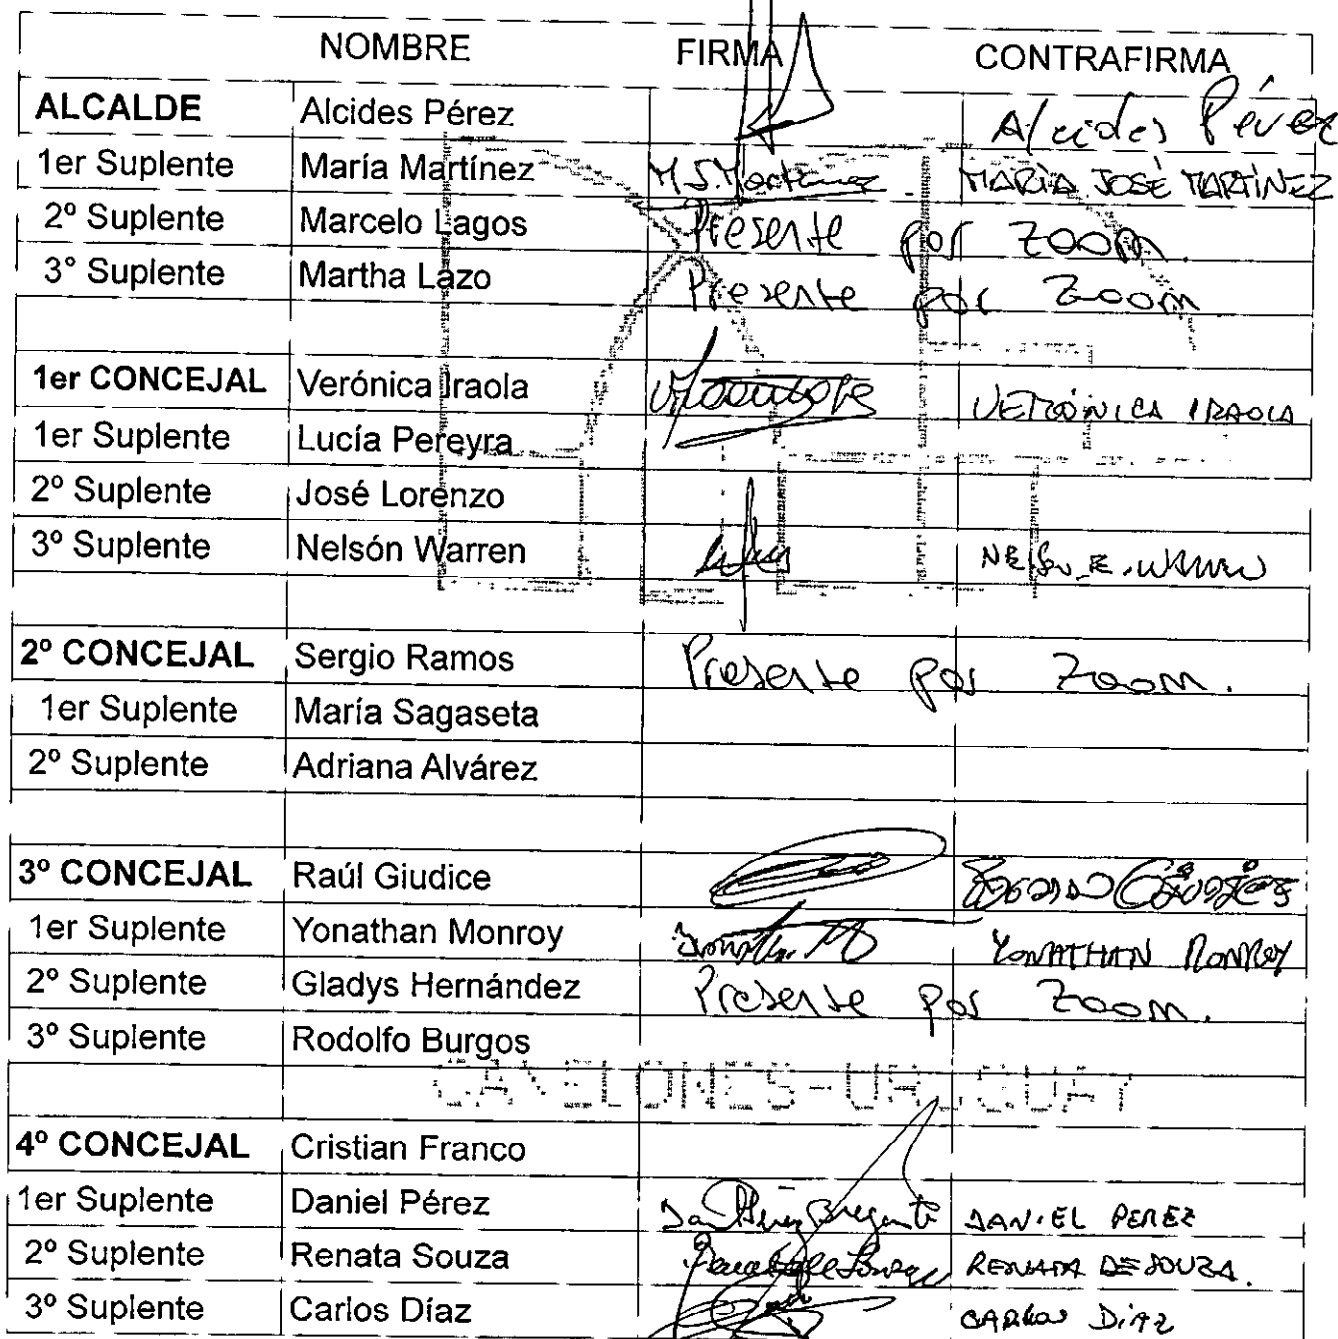 NOMBRE FIRMA CONTRAFIRMA
ALCALDE Alcides Pérez Alcides Pérez
1er Suplente María Martínez M.J.Martinez MARÍA JOSÉ MARTÍNEZ
2º Suplente Marcelo Lagos Presente por zoom.
3° Suplente Martha Lazo Presente por Zoom
1er CONCEJAL Verónica Iraola VERÓNICA IRAOLA
1er Suplente Lucía Pereyra
2º Suplente José Lorenzo
3º Suplente Nelsón Warren
2º CONCEJAL Sergio Ramos Presente por Zoom.
1er Suplente María Sagaseta
2º Suplente Adriana Alvárez
3º CONCEJAL Raúl Giudice
1er Suplente Yonathan Monroy YONATHAN MONROY
2º Suplente Gladys Hernández Presente por Zoom.
3º Suplente Rodolfo Burgos
CANELONES-URUGUAY
4º CONCEJAL Cristian Franco
1er Suplente Daniel Pérez DANIEL PEREZ
2º Suplente Renata Souza RENATA DE SOUZA.
3º Suplente Carlos Díaz CARLOS DÍAZ